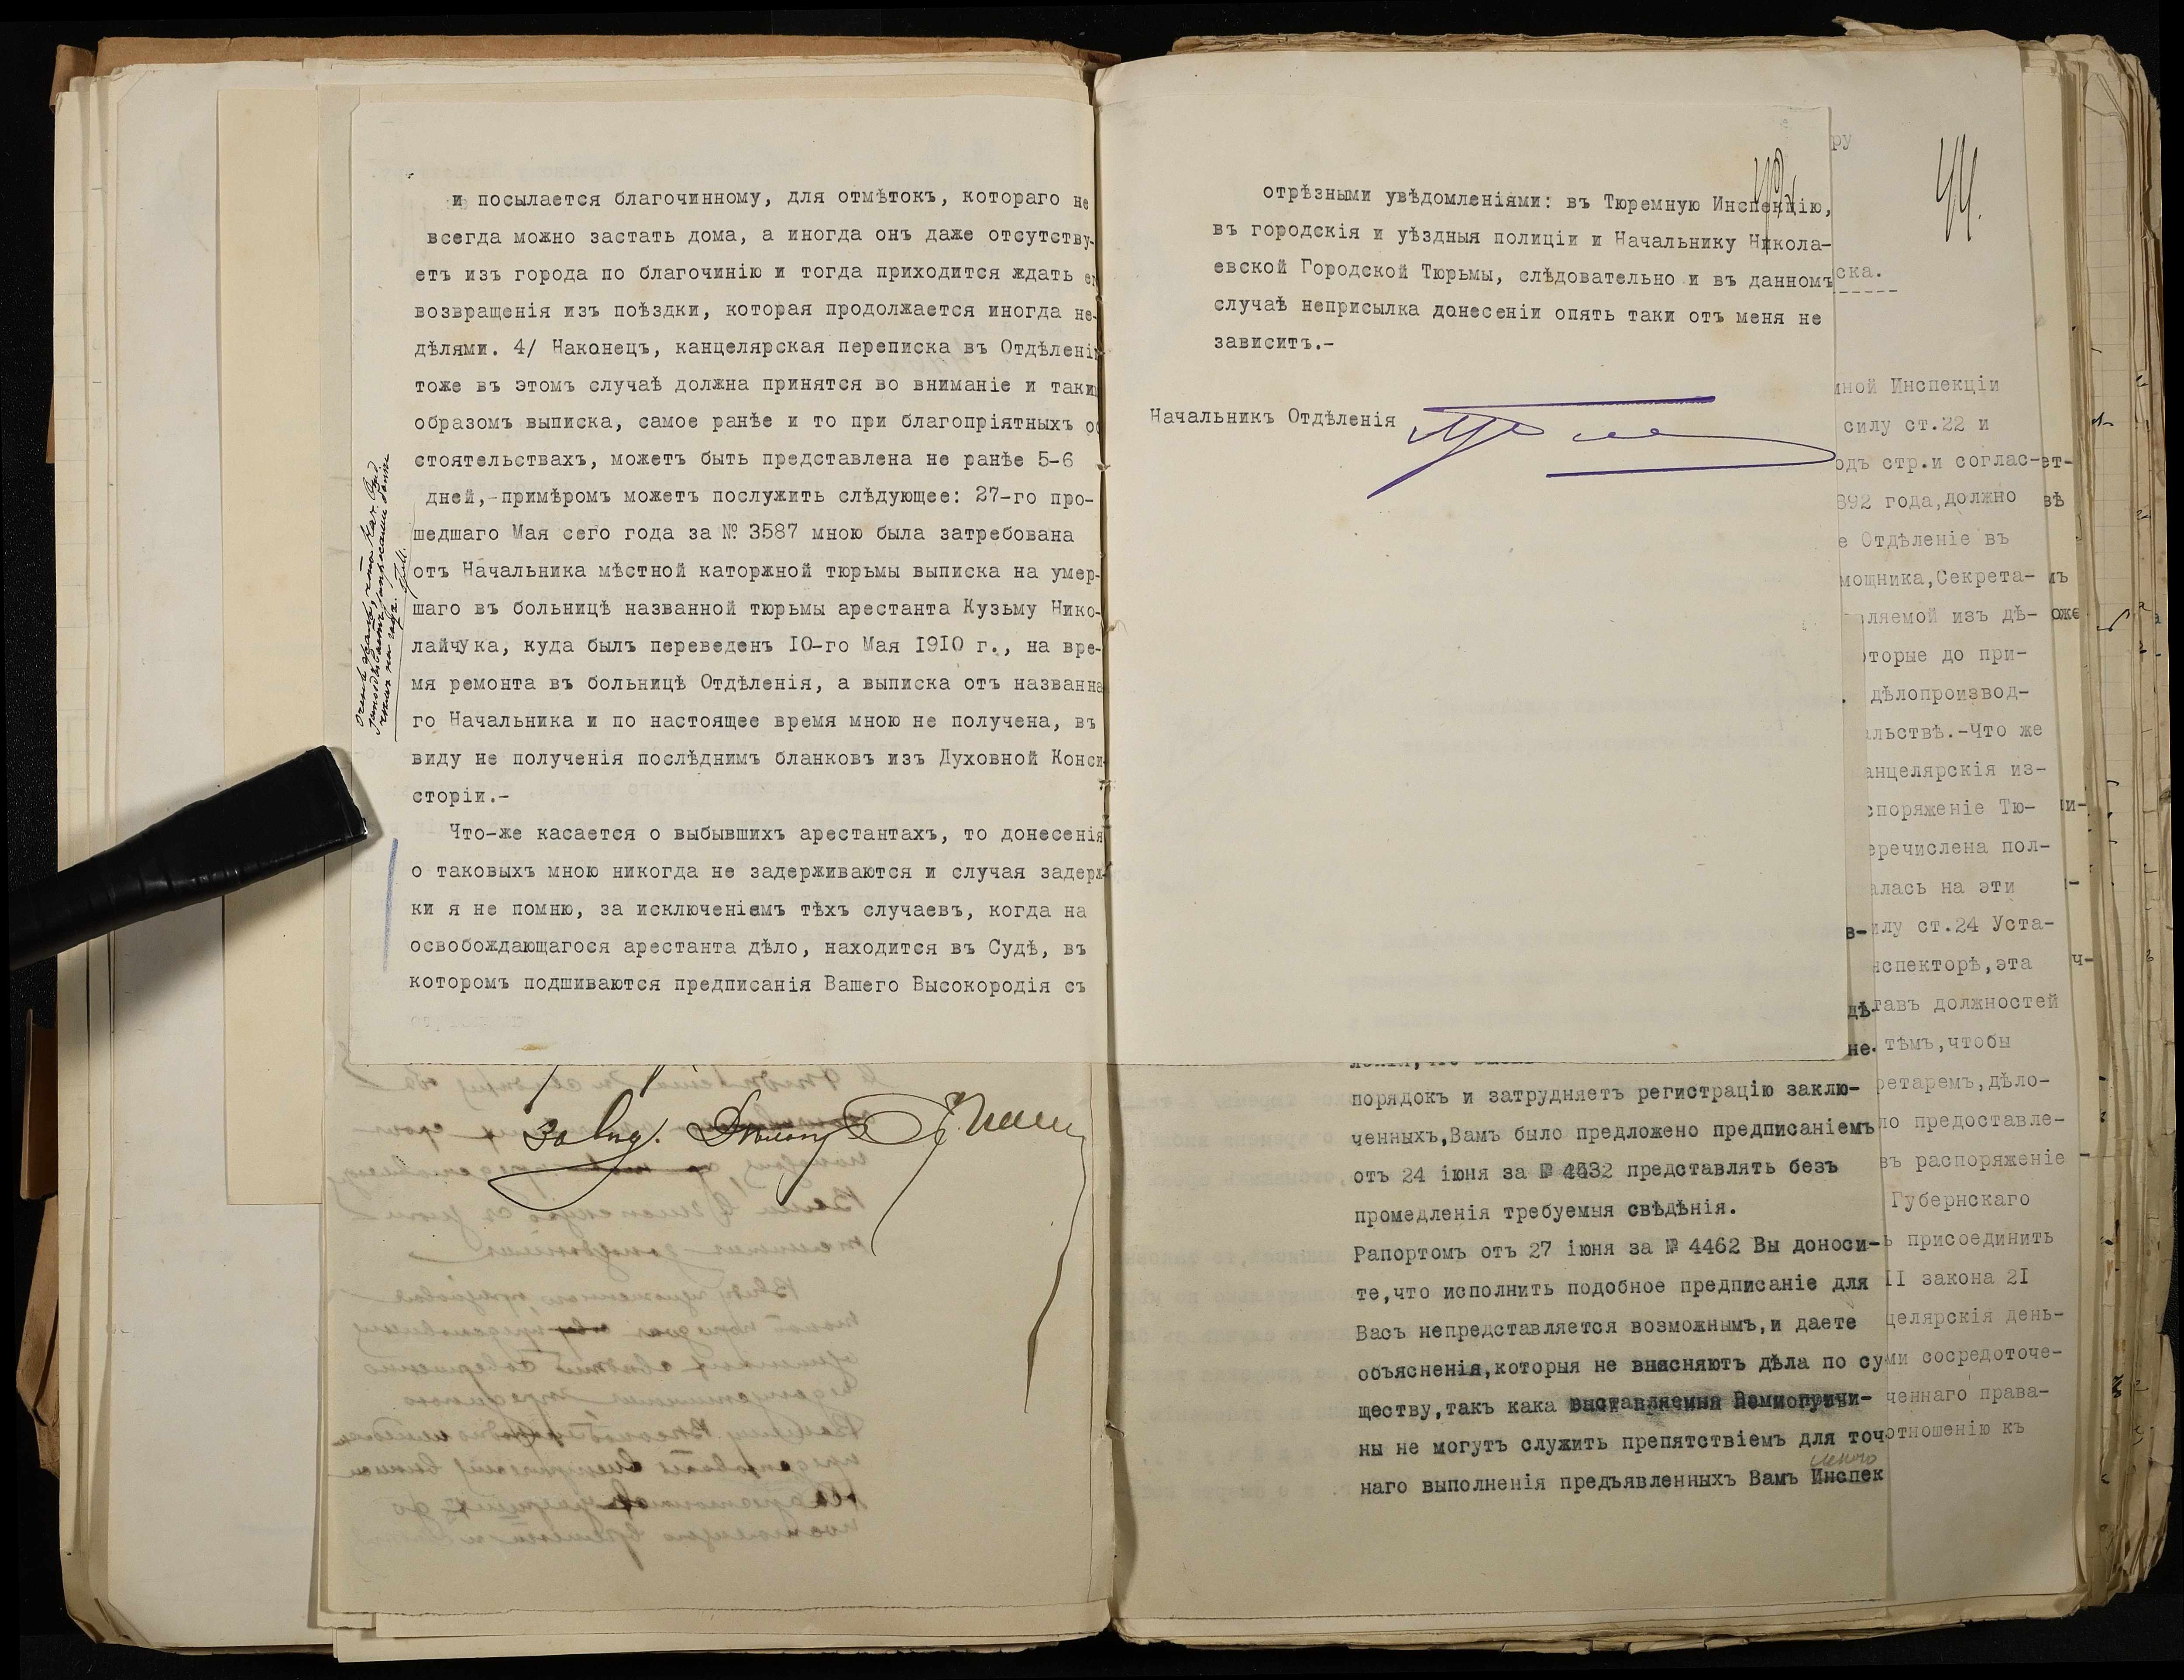 и посылается благочинному, для отмѣтокъ, котораго не
всегда можно застать дома, а иногда онъ даже отсутству-
етъ изъ города по благочинію и тогда приходится ждать ег
возвращенія изъ поѣздки, которая продолжается иногда не-
дѣлями. 4/ Наконецъ, канцелярская переписка въ Отдѣлені
тоже въ этомъ случаѣ должна принятся во вниманіе и таки
образомъ выписка, самое ранѣе и то при благопріятныхъ о
стоятельствахъ, можетъ быть представлена не ранѣе 5-6
дней,-примѣромъ можетъ послужить слѣдующее: 27-го про-
шедшаго Мая сего года за № 3587 мною была затребована
отъ Начальника мѣстной каторжной тюрьмы выписка на умер-
шаго въ больницѣ названной тюрьмы арестанта Кузьму Нико-
лайчука, куда былъ переведенъ 10-го Мая 1910 г., на вре-
мя ремонта въ больницѣ Отдѣленія, а выписка отъ названна
го Начальника и по настоящее время мною не получена, въ
виду не полученія послѣднимъ бланковъ изъ Духовной Конси
сторіи.-
Что-же касается о выбывшихъ арестантахъ, то донесенія
о таковыхъ мною никогда не задерживаются и случая задерж
ки я не помню, за исключеніемъ тѣхъ случаевъ, когда на
освобождающагося арестанта дѣло, находится въ Судѣ, въ
которомъ подшиваются предписанія Вашего Высокородія съ
отрѣзными увѣдомленіями: въ Тюремную Инспекцію,
въ городскія и уѣздныя полиціи и Начальнику Никола-
евской Городской Тюрьмы, слѣдовательно и въ данномъ
случаѣ неприсылка донесеніи опять таки отъ меня не
зависитъ.-
Начальникъ Отдѣленія
порядокъ и затрудняетъ регистрацію заклю-
ченныхъ,Вамъ было предложено предписаніемъ
отъ 24 іюня за № 4532 представлять безъ
промедленія требуемыя свѣдѣнія.
Рапортомъ отъ 27 іюня за № 4462 Вы доноси-
те,что исполнить подобное предписаніе для
Васъ непредставляется возможнымъ,и даете
объясненія,которыя не выясняютъ дѣла по су
ществу,такъ кака выставляемыя Вами причи-
ны не могутъ служить препятствіемъ для точ
наго выполненія предъявленныхъ Вамъ Инспек
44.
ру
ска.
ной Инспекціи
силу ст.22 и
одъ стр.и соглас-
892 года,должно
е Отдѣленіе въ
мощника,Секрета-
вляемой изъ дѣ-
оторые до при-
дѣлопроизвод-
льствѣ.-Что же
анцелярскія из-
споряженіе Тю-
еречислена пол-
алась на эти
илу ст.24 Уста-
нспекторѣ,эта
тавъ должностей
тѣмъ,чтобы
ретаремъ,дѣло-
ло предоставле-
въ распоряженіе
Губернскаго
ь присоединить
II закона 21
целярскія день-
ми сосредоточе-
ченнаго права-
отношенію къ